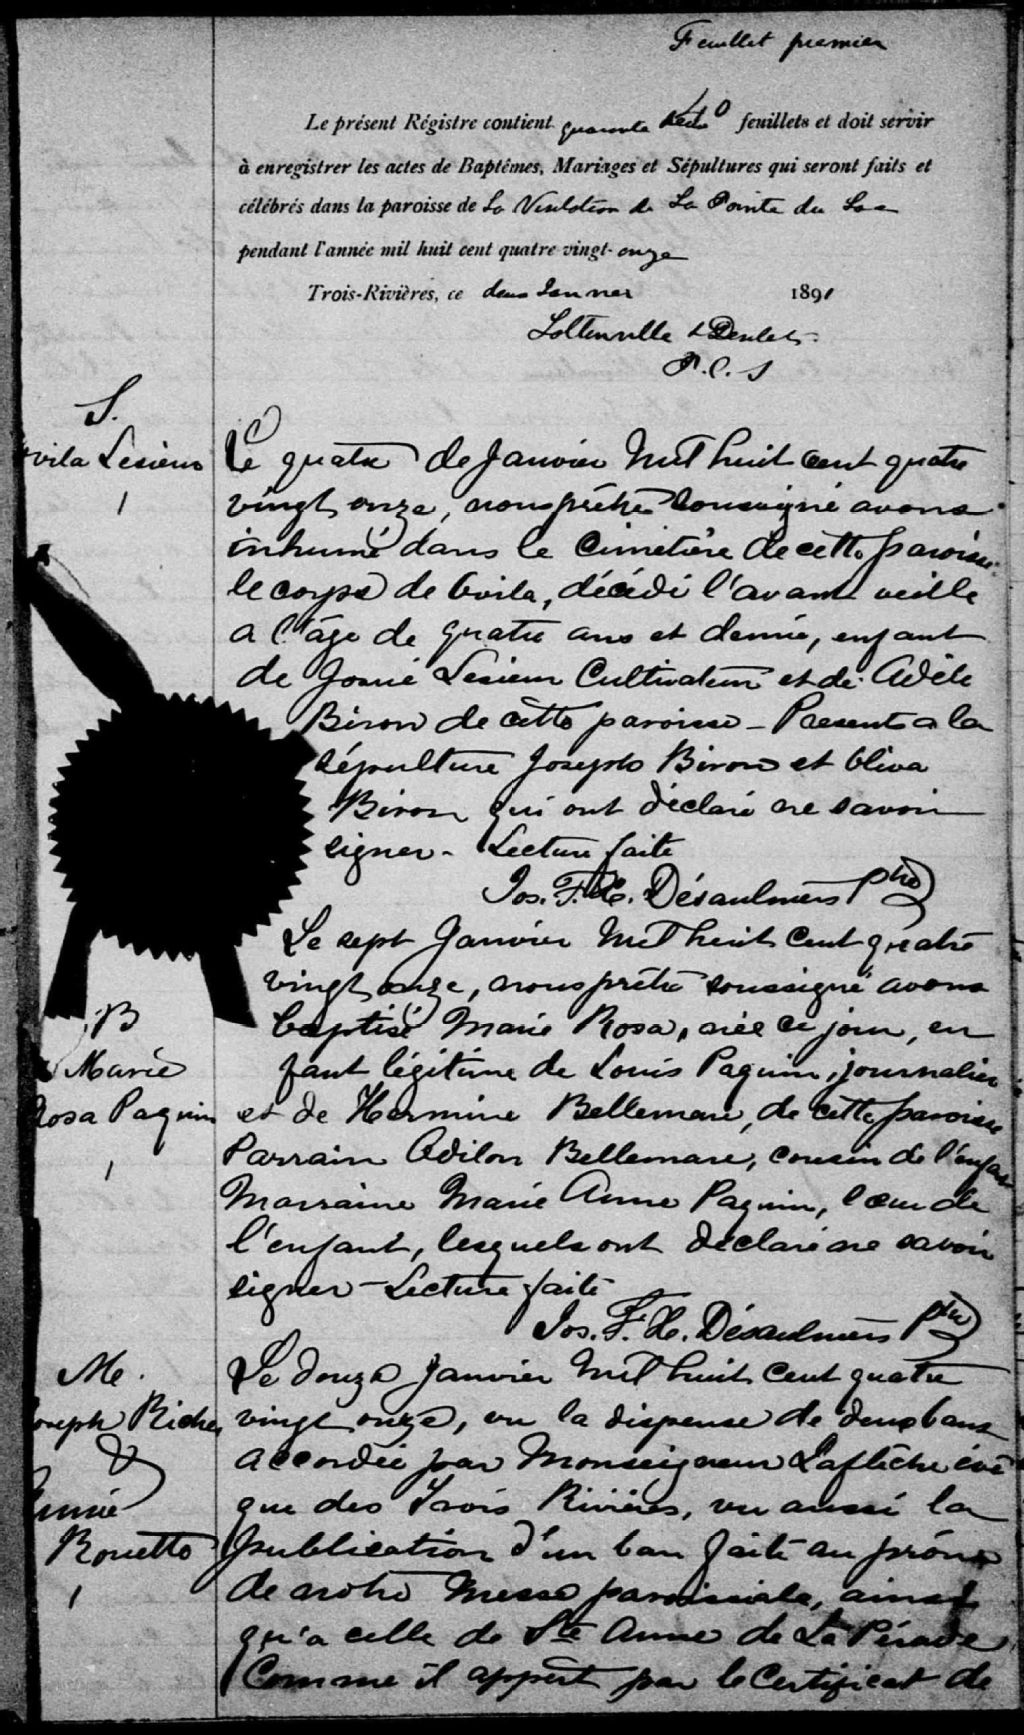 Feuillet premier
Le présent Régistre contient quarante feuillets et doit servir
à enregistrer les actes de Baptêmes, Mariages et Sépultures qui seront faits et
célébrés dans la paroisse de La Visitation de La Pointe du Lac
pendant l'année mil huit cent quatre vingt-onze
Trois-Rivières, ce deux Janvier 1891
P.C.S
S.
vila Lesieur
1
Le quatre de Janvier Mil huit cent quatre
vingt onze, nous prêtre soussigné avons
inhumé dans le Cimetière de cette paroisse
le corps de Ovila, décédé l'avant veille
a l'âge de quatre ans et demie, enfant
de Josué Lesieur Cultivateur et de Adèle
Biron de cette paroisse - Presents a la
sépulture Joseph Biron et Oliva
Biron qui ont déclaré ne savoir
signer - Lecture faite
Jos. F. X. Désaulniers Ptre
B
Marie
Rosa Paquin
1
Le sept Janvier Mil huit cent quatre
vingt onze, nous prêtre soussigné avons
baptisé Marie Rosa, née ce jour, en
fant légitime de Louis Paquin, journalier
et de Hermine Bellemare, de cette paroisse
Parrain Odilon Bellemare, cousin de l'enfant
Marraine Marie Anne Paquin, sœur de
l'enfant, lesquels ont déclaré ne savoir
signer - Lecture faite
Jos. F. X. Désaulniers Ptre
M.
oseph Richer
&
Annie
Rouette
1
Le douze Janvier Mil huit cent quatre
vingt onze, vu la dispense de deux bans
accordée par Monseigneur Laflèche évê
que des Trois Rivières, vu aussi la
publication d'un ban faite au prône
de notre Messe paroissiale, ainsi
qu'a celle de Ste Anne de La Pérade
Comme il appert par le Certificat de